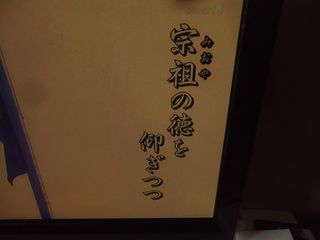 宗祖の徳を
みおや
仰ぎつつ